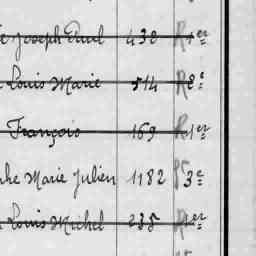 Joseph Emil 430 R 1er
Louis Marie 514 R 2e
François 169 R 1er
Marie Julien 1182 3e
Louis Michel 235 R 1er